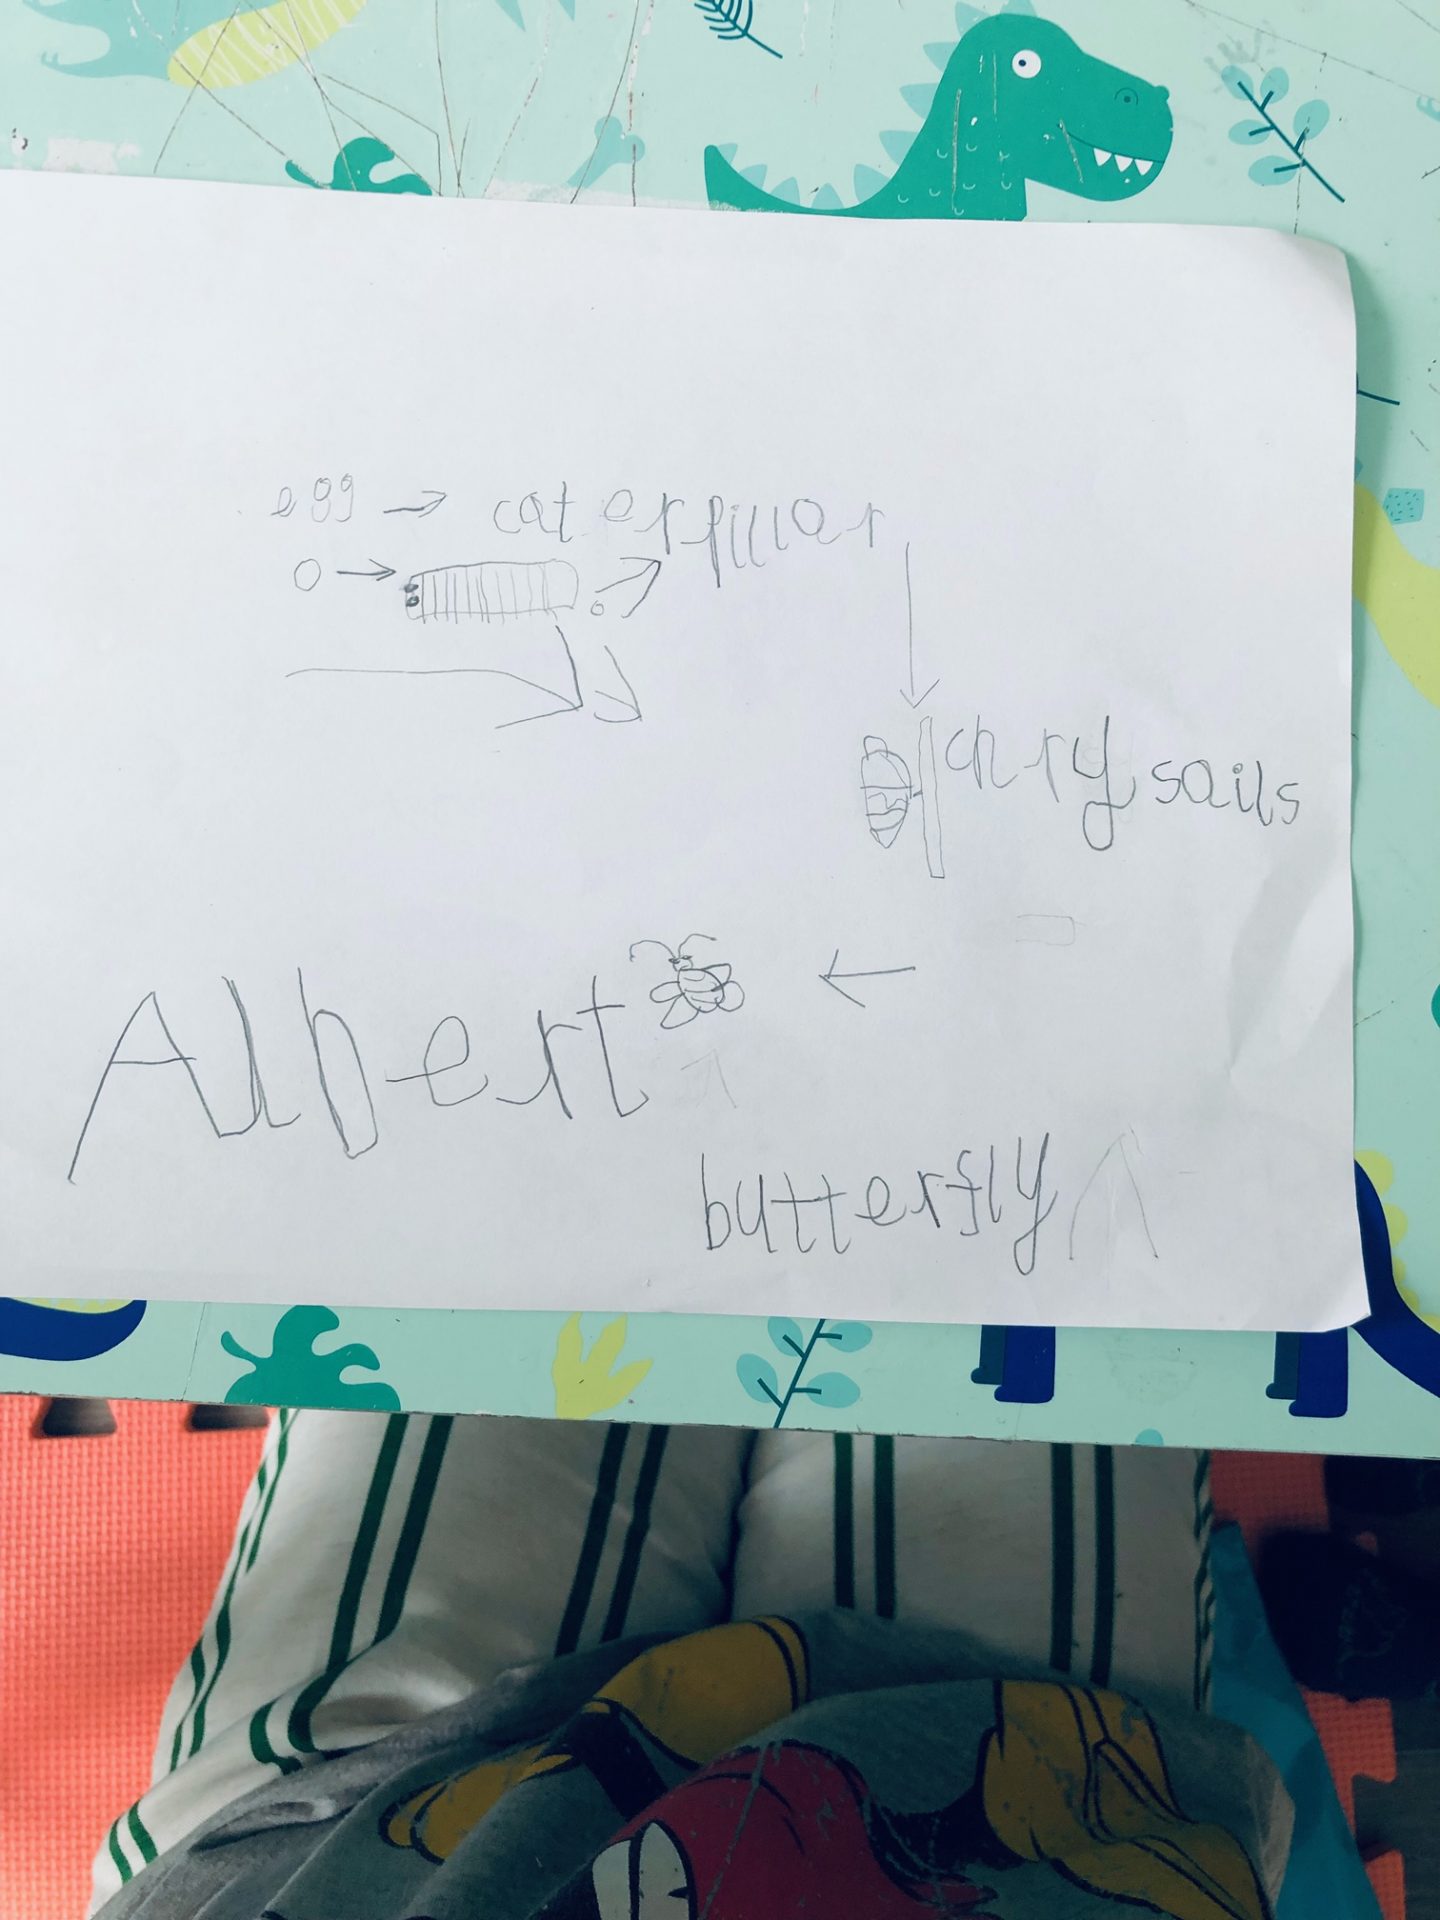 egg → caterpillar
chrysails
Albert
butterfly